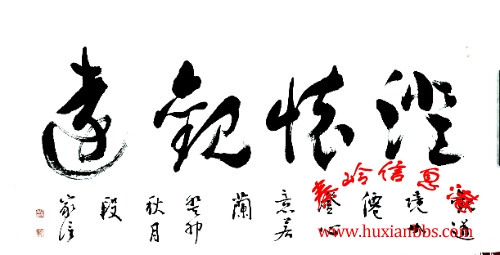 澄懷觀道
道境如僊
心意若蘭
癸卯秋月
段家
信息
www.huxianbbs.com